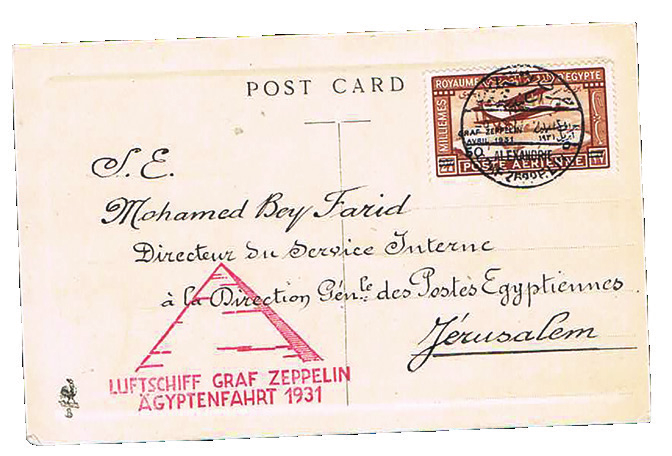 POST CARD
ROYAUME D'EGYPTE
MILLIEMES
GRAF ZEPPELIN
AVRIL 1931
50
ALEXANDRIE
POSTE AÉRIENNE
S. E.
Mohamed Bey Farid
Directeur du Service Interne
à la Direction Génle. des Postes Egyptiennes
Jérusalem
LUFTSCHIFF GRAF ZEPPELIN
ÄGYPTENFAHRT 1931